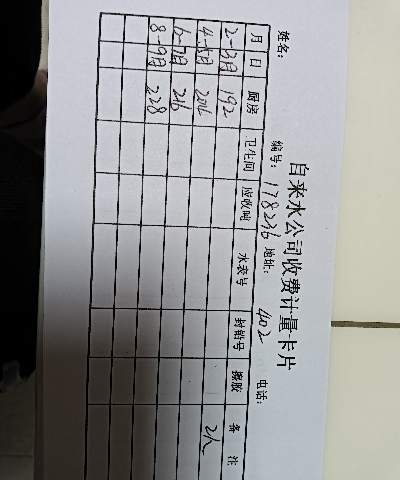 自来水公司收费计量卡片
姓名: 编号: 178236 地址: 402 电话:
月 日 厨房 卫生间 应收吨 水表号 封铅号 撩胶 备注
2-3月 192
4-5月 204 2人
6-7月 216
8-9月 228